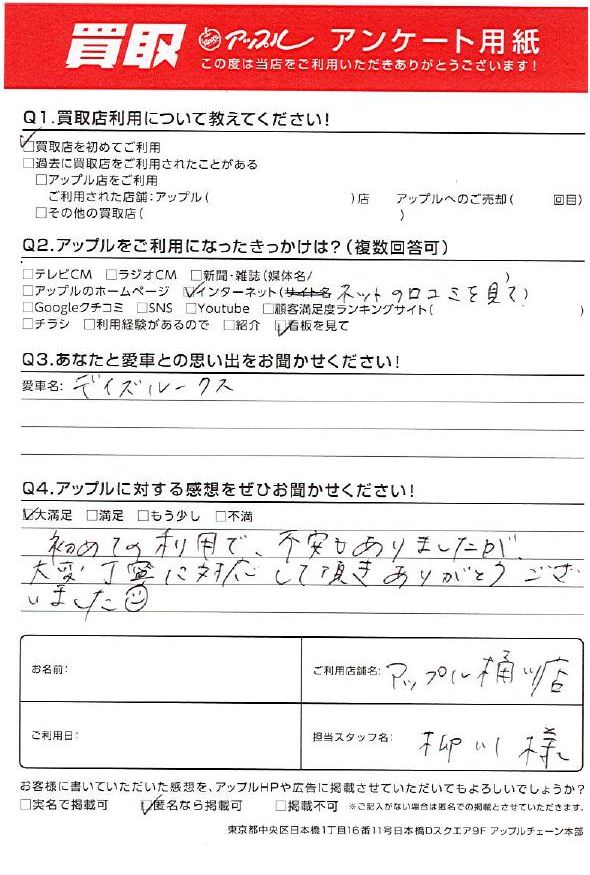 買取 アップル アンケート用紙
この度は当店をご利用いただきありがとうございます！
Q1.買取店利用について教えてください！
☑買取店を初めてご利用
□過去に買取店をご利用されたことがある
□アップル店をご利用
ご利用された店舗：アップル（ ）店 アップルへのご売却（ 回目）
□その他の買取店（ ）
Q2.アップルをご利用になったきっかけは？（複数回答可）
□テレビCM □ラジオCM □新聞・雑誌（媒体名/ ）
□アップルのホームページ ☑インターネット（サイト名 ネットの口コミを見て）
□Googleクチコミ □SNS □Youtube □顧客満足度ランキングサイト（ ）
□チラシ □利用経験があるので □紹介 ☑看板を見て
Q3.あなたと愛車との思い出をお聞かせください！
愛車名：デイズルークス
Q4.アップルに対する感想をぜひお聞かせください！
☑大満足 □満足 □もう少し □不満
初めての利用で、不安もありましたが、
大変丁寧に対応して頂きありがとうござ
いました☺
お名前： ご利用店舗名：アップル桶川店
ご利用日： 担当スタッフ名：柳川様
お客様に書いていただいた感想を、アップルHPや広告に掲載させていただいてもよろしいでしょうか？
□実名で掲載可 ☑匿名なら掲載可 □掲載不可 ※ご記入がない場合は匿名での掲載とさせていただきます。
東京都中央区日本橋1丁目16番11号日本橋Dスクエア9F アップルチェーン本部